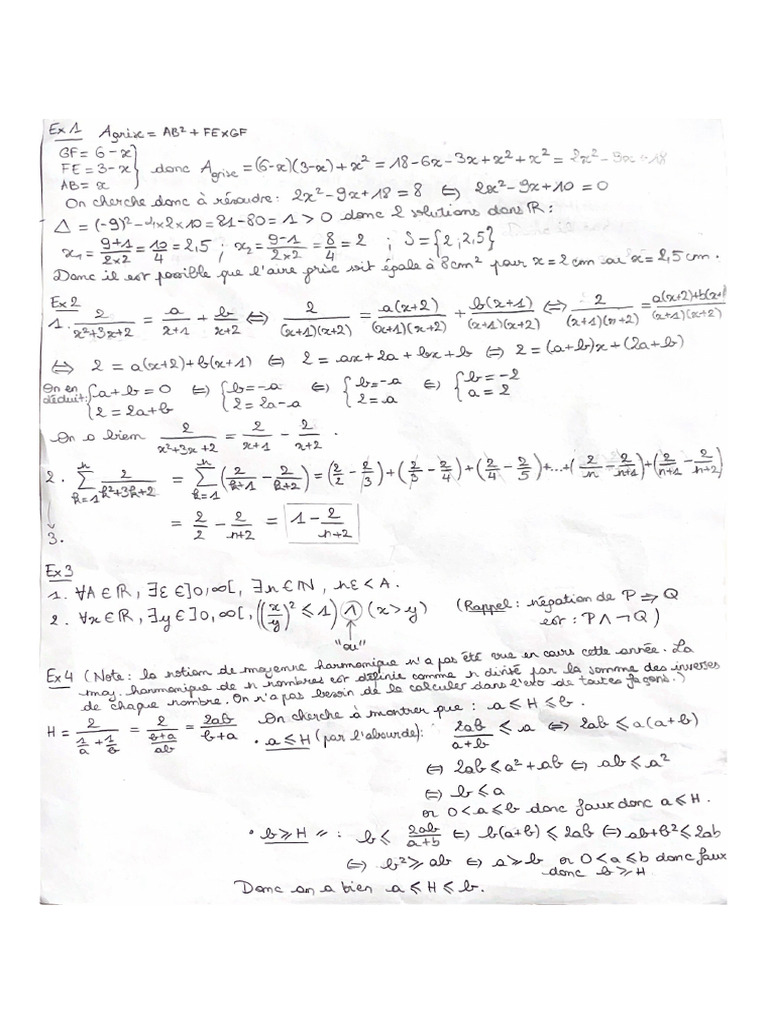 Ex 1 Agrise = AB² + FE×GF
GF = 6 - x
FE = 3 - x } donc Agrise = (6-x)(3-x) + x² = 18 - 6x - 3x + x² + x² = 2x² - 9x + 18
AB = x
On cherche donc à résoudre : 2x² - 9x + 18 = 8 ⇔ 2x² - 9x + 10 = 0
Δ = (-9)² - 4×2×10 = 81 - 80 = 1 > 0 donc 2 solutions dans ℝ :
x₁ = (9+1)/(2×2) = 10/4 = 2,5 ; x₂ = (9-1)/(2×2) = 8/4 = 2 ; S = {2 ; 2,5}
Donc il est possible que l'aire grise soit égale à 8 cm² pour x = 2 cm ou x = 2,5 cm.
Ex 2
1. 2/(x²+3x+2) = a/(x+1) + b/(x+2) ⇔ 2/((x+1)(x+2)) = a(x+2)/((x+1)(x+2)) + b(x+1)/((x+1)(x+2)) ⇔ 2/((x+1)(x+2)) = (a(x+2)+b(x+1)/((x+1)(x+2))
⇔ 2 = a(x+2) + b(x+1) ⇔ 2 = ax + 2a + bx + b ⇔ 2 = (a+b)x + (2a+b)
On en déduit : { a+b = 0 ; 2 = 2a+b ⇔ { b = -a ; 2 = 2a-a ⇔ { b = -a ; 2 = a ⇔ { b = -2 ; a = 2
On a bien 2/(x²+3x+2) = 2/(x+1) - 2/(x+2) .
2. ∑_{k=1}^{n} 2/(k²+3k+2) = ∑_{k=1}^{n} (2/(k+1) - 2/(k+2)) = (2/2 - 2/3) + (2/3 - 2/4) + (2/4 - 2/5) + ... + (2/n - 2/(n+1)) + (2/(n+1) - 2/(n+2))
↓
3. = 2/2 - 2/(n+2) = 1 - 2/(n+2)
Ex 3
1. ∀A ∈ ℝ, ∃ε ∈ ]0, ∞[, ∃n ∈ ℕ, nε < A.
2. ∀x ∈ ℝ, ∃y ∈ ]0, ∞[, ((x/y)² ≤ 1) ∧ (x > y) (Rappel : négation de P ⇒ Q
"ou" est : P ∧ ¬Q)
Ex 4 (Note : la notion de moyenne harmonique n'a pas été vue en cours cette année. La
moy. harmonique de n nombres est définie comme n divisé par la somme des inverses
de chaque nombre. On n'a pas besoin de la calculer dans l'exo de toutes façons.)
H = 2/(1/a + 1/b) = 2/((b+a)/ab) = 2ab/(b+a) On cherche à montrer que : a ≤ H ≤ b .
• a ≤ H (par l'absurde) : 2ab/(a+b) ≤ a ⇔ 2ab ≤ a(a+b)
⇔ 2ab ≤ a² + ab ⇔ ab ≤ a²
⇔ b ≤ a
or 0 < a ≤ b donc faux donc a ≤ H .
• b ≥ H " : b ≤ 2ab/(a+b) ⇔ b(a+b) ≤ 2ab ⇔ ab + b² ≤ 2ab
⇔ b² ≥ ab ⇔ a ≥ b or 0 < a ≤ b donc faux
donc b ≥ H
Donc on a bien a ≤ H ≤ b .